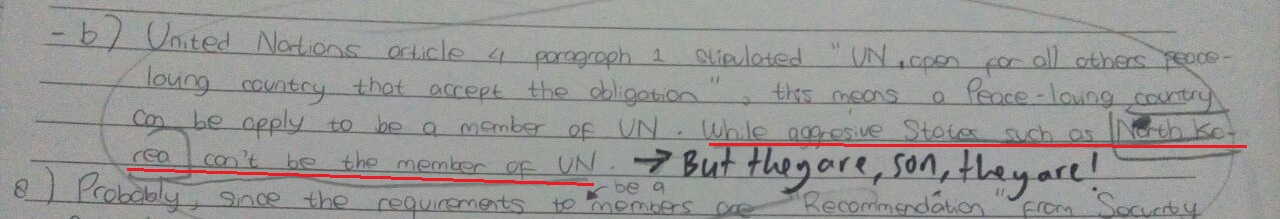 - b) United Nations article 4 paragraph 1 stipulated "UN, open for all others peace-
loving country that accept the obligation", this means a Peace-loving country
can be apply to be a member of UN. While aggresive States such as North Ko-
rea can't be the member of UN. → But they are, son, they are!
be a
e) Probably, since the requirements to members are "Recommendation" from Security